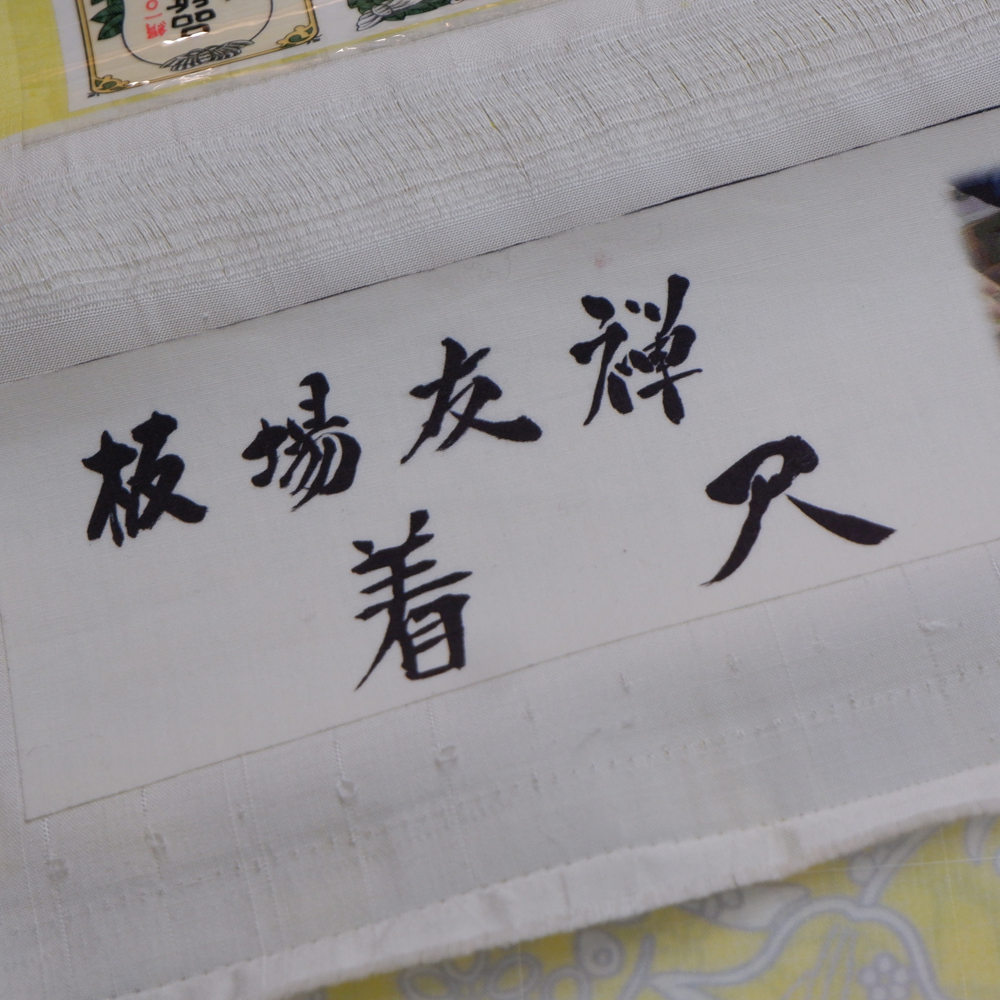 板場友禅
着尺